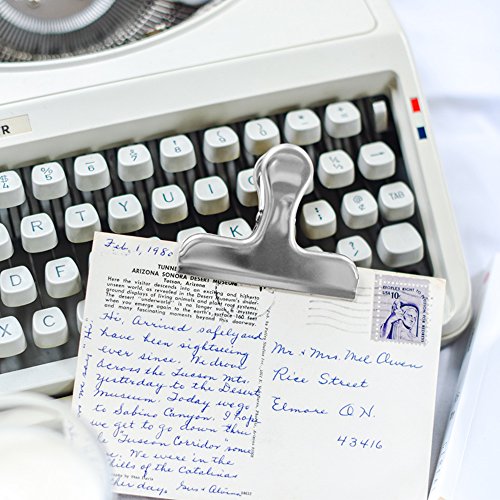 R
$ % - & ' ( ) * 1/4
4 5 6 7 8 9 0
R T Y U I O P TAB
C V
Feb. 1, 1980
TUNNEL
ARIZONA SONORA DESERT MUSEUM
Tucson, Arizona
Here the visitor descends into an exciting and hitherto
unseen world, as revealed in the Desert Museum's under-
ground displays of living animals and plant root systems.
The desert "underworld" is no longer such a mystery
after a trip beneath the earth's surface
many fascinating moments beyond this doorway.
Hi, Arrived safely and
have been sightseeing
ever since. We drove
across the Tucson Mts.
yesterday to the Desert
Museum. Today we go
to Sabino Canyon. I hope
we get to go down thru
the "Tucson Corridor" some
We were in the
hills of the Catalinas
day. Gus & Alvina
PEOPLES RIGHT
USA 10c
Mr & Mrs Mel Owen
Rice Street
Elmore OH.
43416